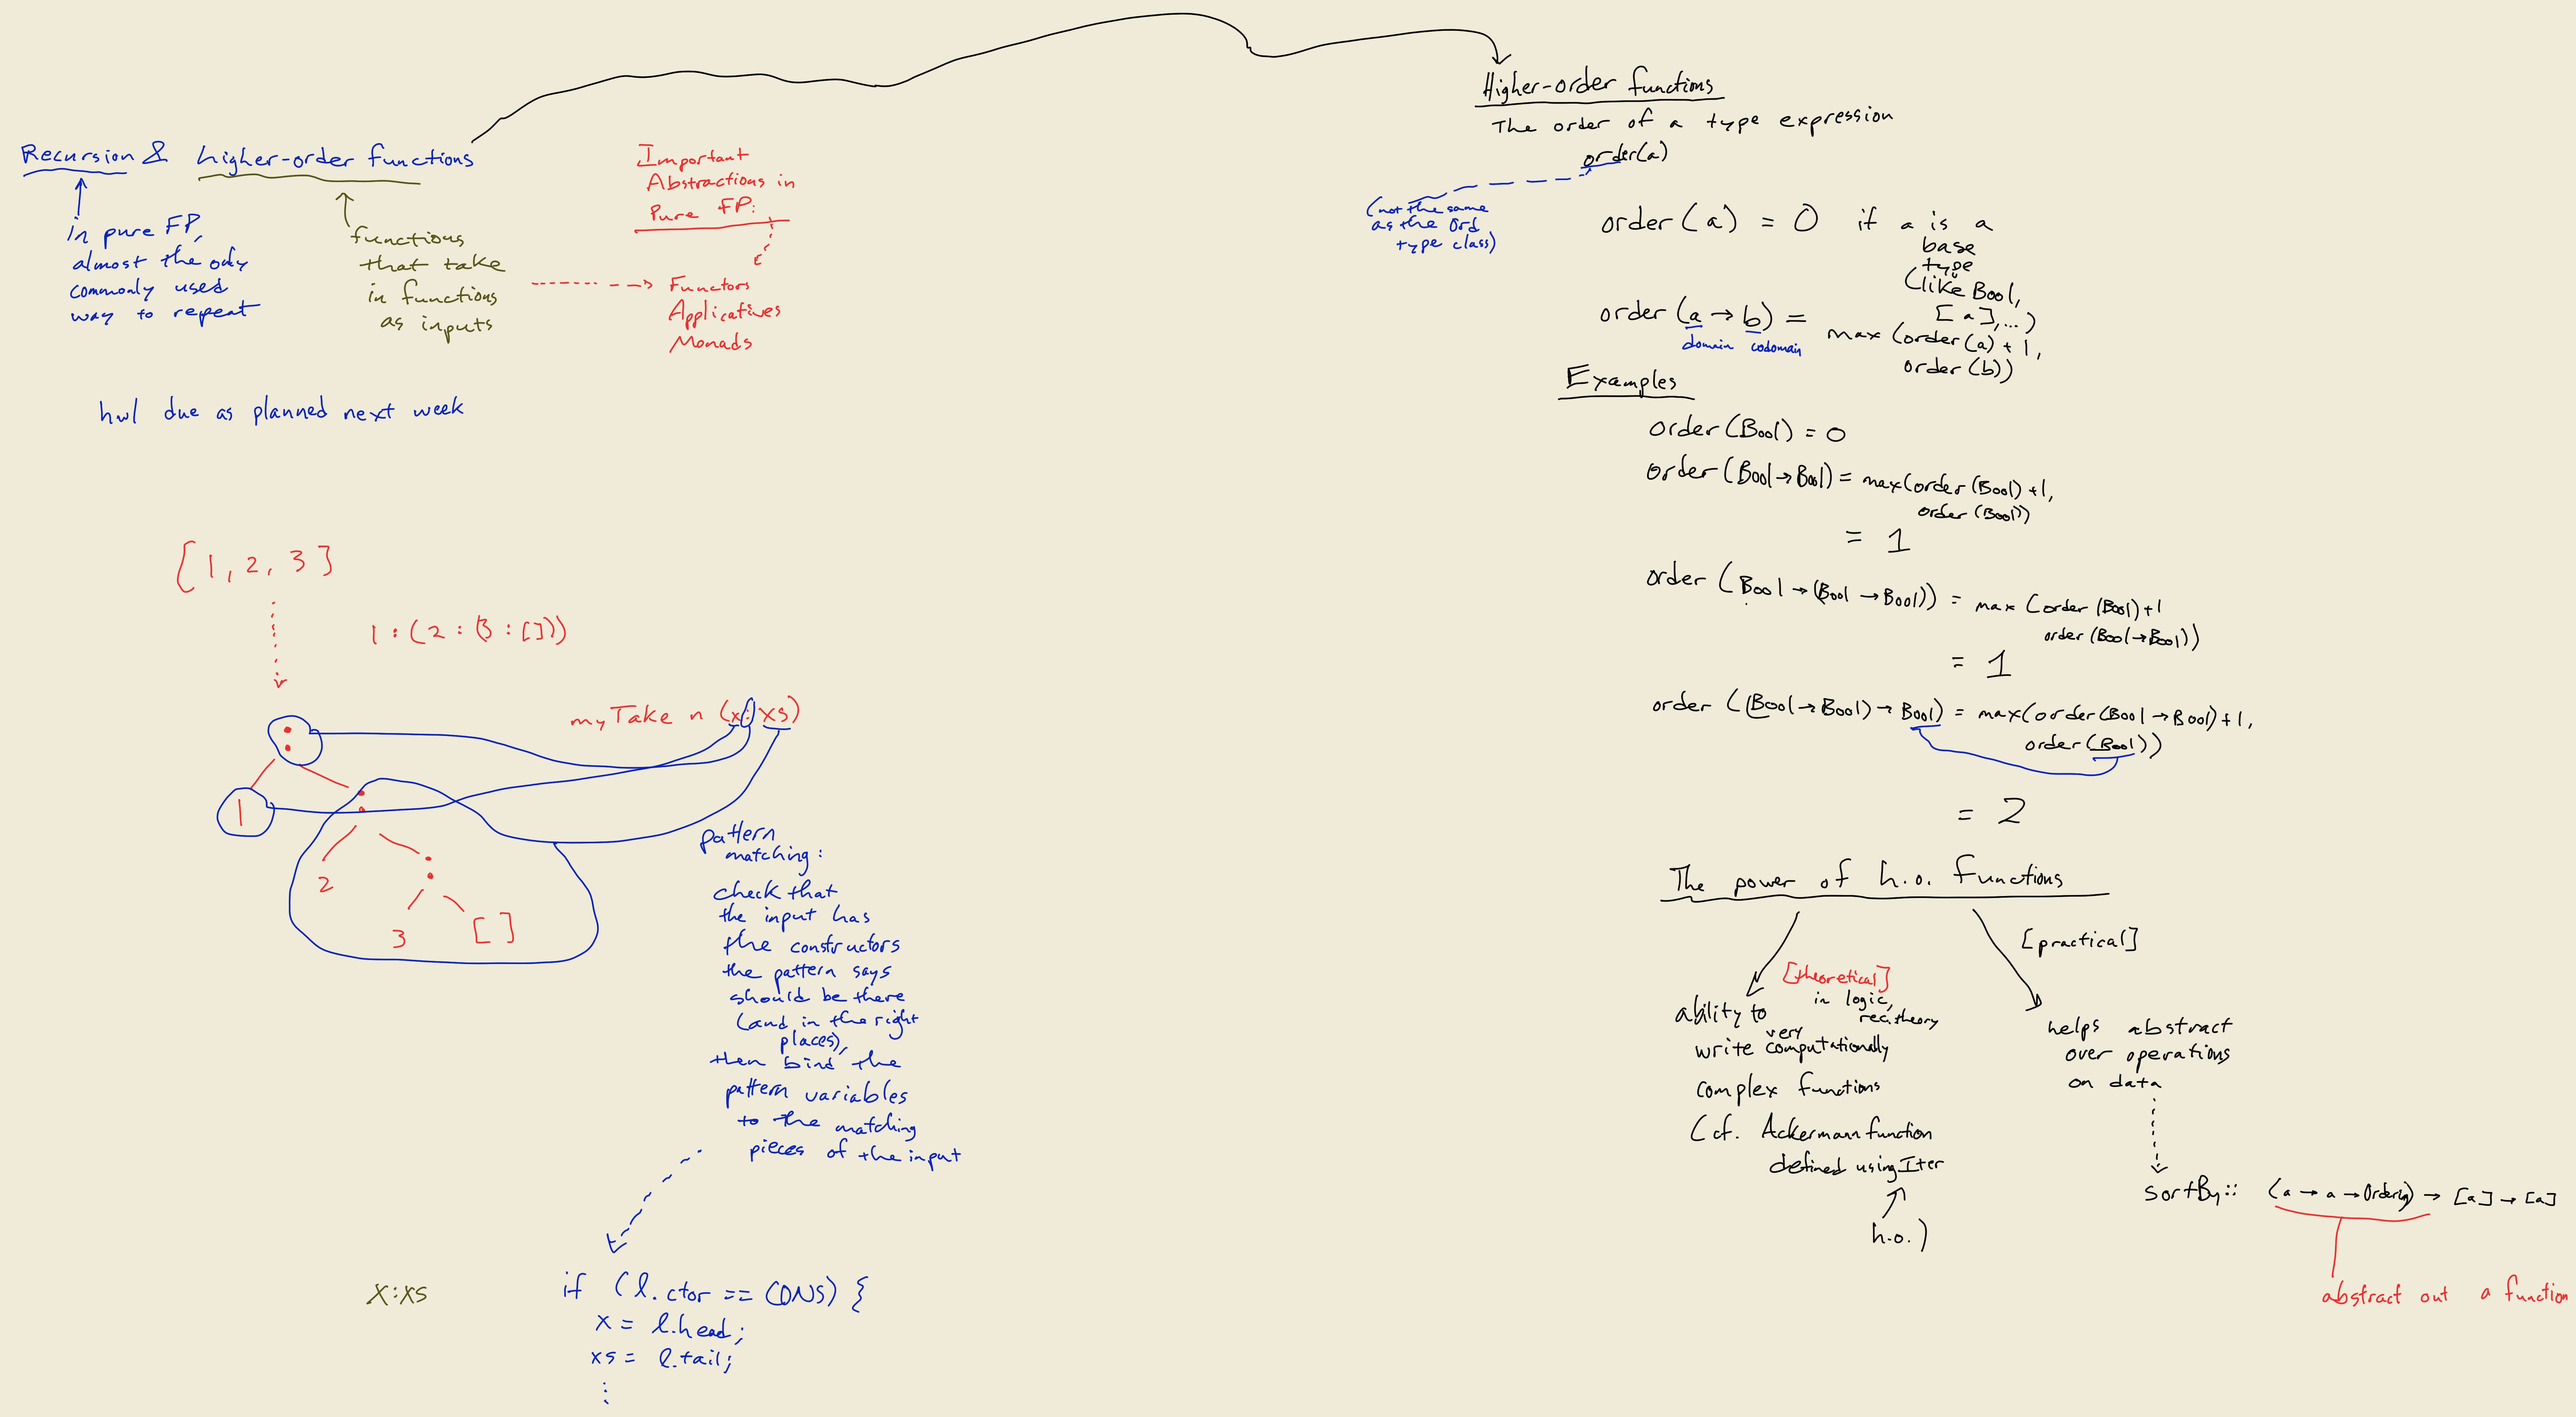 Recursion & higher-order functions
in pure FP,
almost the only
commonly used
way to repeat
functions
that take
in functions
as inputs
Important
Abstractions in
Pure FP:
Functors
Applicatives
Monads
hw1 due as planned next week
[1, 2, 3]
1 : (2 : (3 : []))
myTake n (x:xs)
:
1
:
2
:
3
[]
pattern
matching:
check that
the input has
the constructors
the pattern says
should be there
(and in the right
places),
then bind the
pattern variables
to the matching
pieces of the input
x:xs
if (l.ctor == CONS) {
x = l.head;
xs = l.tail;
⋮
Higher-order functions
The order of a type expression
order(a)
(not the same
as the Ord
type class)
order(a) = 0 if a is a
base
type
(like Bool,
[a],...)
order(a → b) =
domain codomain
max(order(a)+1,
order(b))
Examples
order(Bool) = 0
order(Bool→Bool) = max(order(Bool)+1,
order(Bool))
= 1
order(Bool→(Bool→Bool)) = max(order(Bool)+1
order(Bool→Bool))
= 1
order((Bool→Bool)→Bool) = max(order(Bool→Bool)+1,
order(Bool))
= 2
The power of h.o. functions
[theoretical]
in logic,
rec. theory
ability to
very
write computationally
complex functions
(cf. Ackermann function
defined using Iter
h.o.)
[practical]
helps abstract
over operations
on data
sortBy:: (a→a→Ordering) → [a]→[a]
abstract out a function